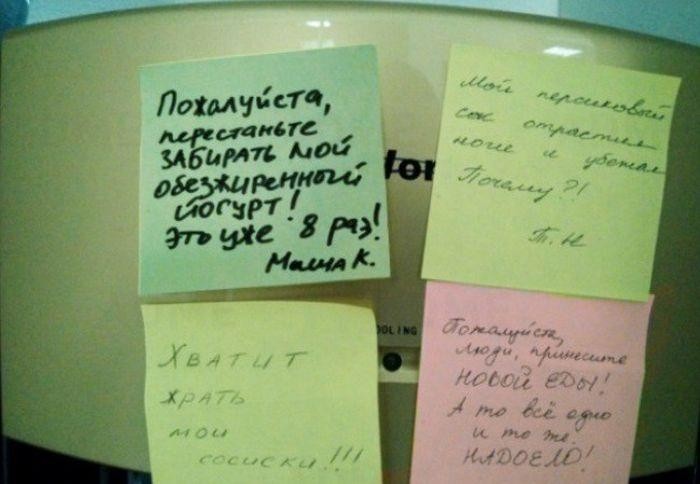 Пожалуйста,
перестаньте
ЗАБИРАТЬ МОЙ
обезжиренный
йогурт!
это уже 8 раз!
Маша К.
Мой персиковый
сок отрастил
ноги и убежал
Почему?!
Т.Н
ХВАТИТ
ЖРАТЬ
МОИ
СОСИСКИ!!!
Пожалуйста,
люди, принесите
НОВОЙ ЕДЫ!
А то всё одно
и то же.
НАДОЕЛО!